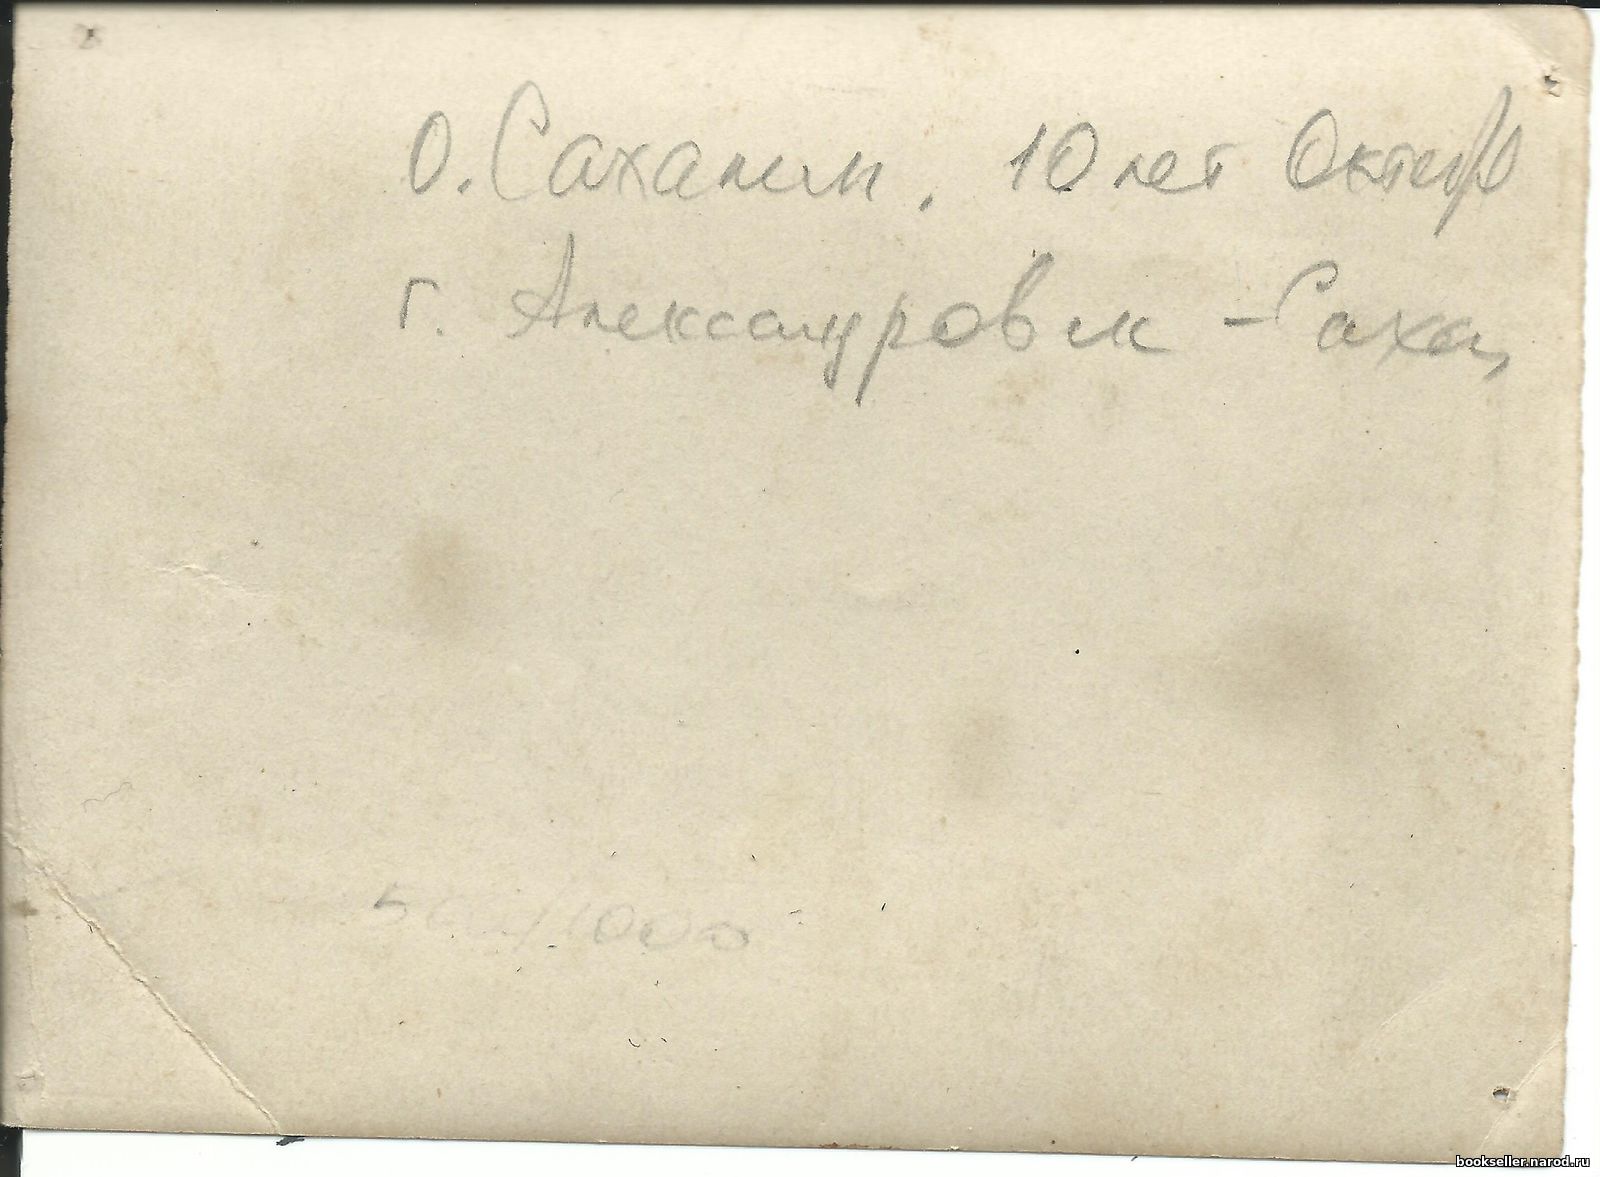 О. Сахалин. 10 лет Октяб
г. Александровск - Сахал
500/1000
bookseller.narod.ru